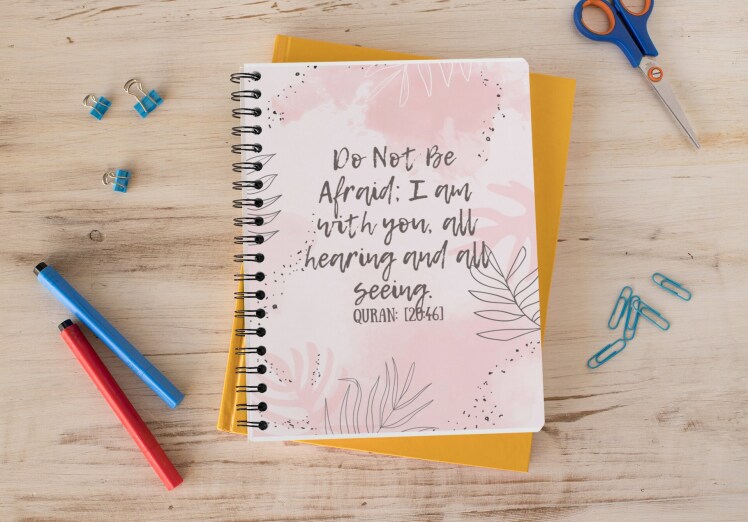 Do Not Be
Afraid; I am
with you, all
hearing and all
seeing.
QURAN: [20:46]